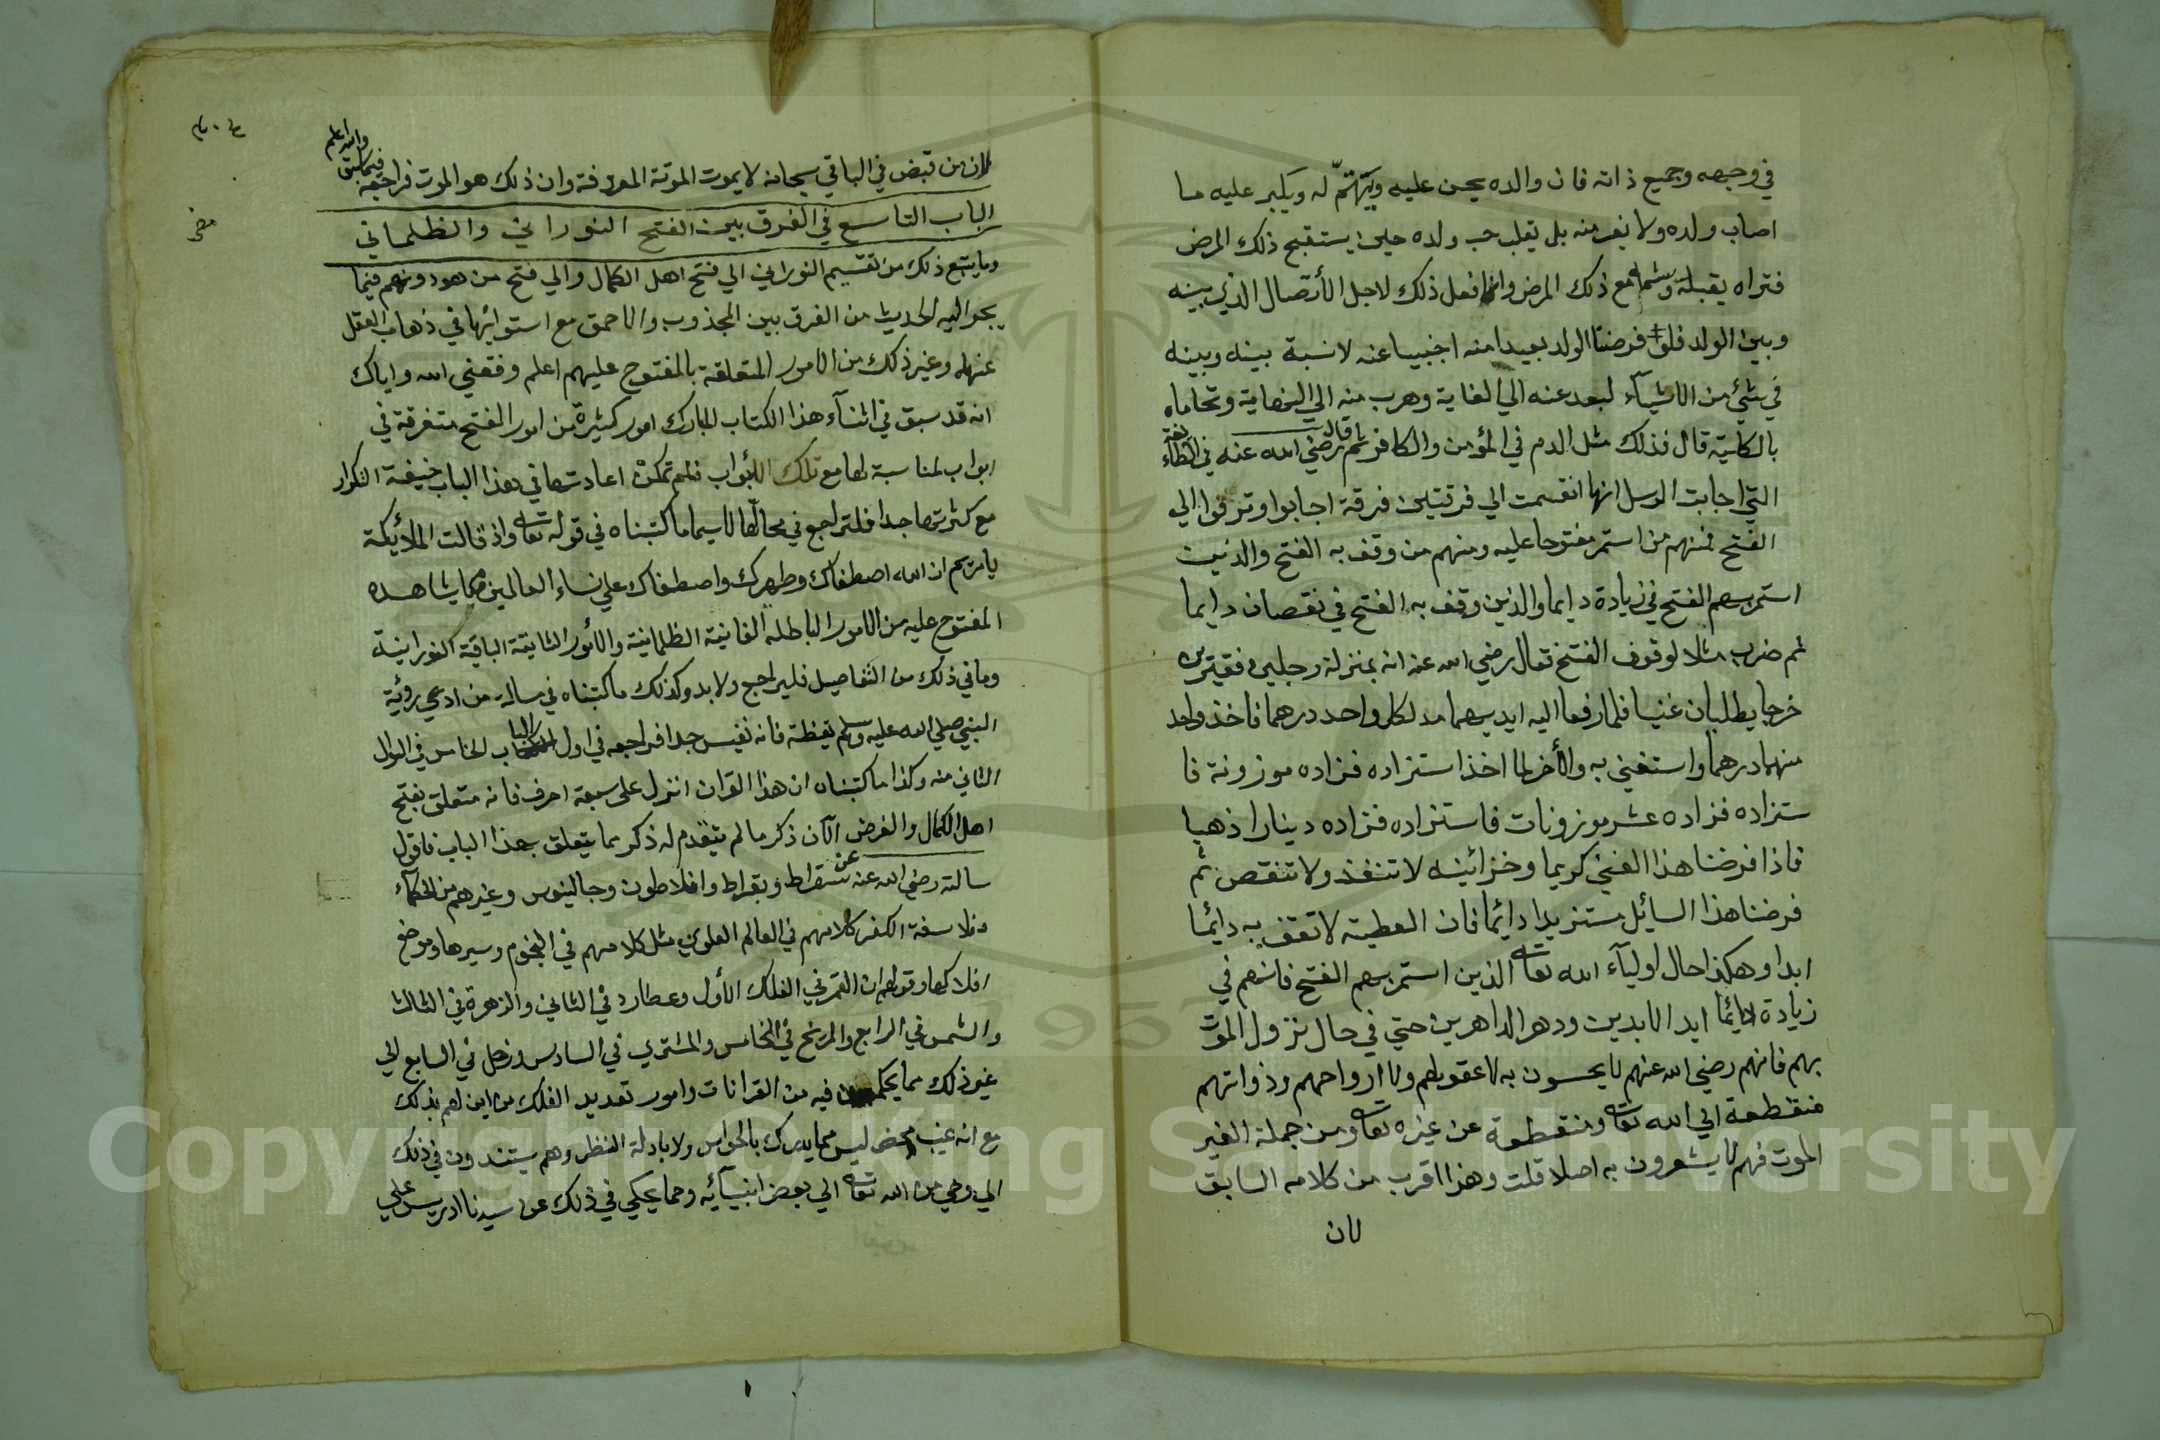 في وجهه وجميع ذاته فان والده يحن عليه ويهتمّ له ويكبر عليه ما
اصاب ولده ولا ينفر منه بل يغلب حب ولده حين يستقبح ذلك المرض
فتراه يقبله ويشمه مع ذلك المرض وانما فعل ذلك لاجل الأتصال الذي بينه
وبين الولد فلو فرضنا الولد بعيدا منه اجنبيا عنه لا نسبة بينه وبينه
في شئ من الاشيآء لبعد عنه الي الغاية وهرب منه الي النهاية وتحاماه
بالكلية قال فذلك مثل الدم في المؤمن والكافر ثم قال رضي الله عنه في الطائفة
التي اجابت الرسل انها انقسمت الي فرقتين فرقة اجابوا وترقوا الي
الفتح فمنهم من استمر مفتوحا عليه ومنهم من وقف به الفتح والذين
استمر بهم الفتح في زيادة دايما والذين وقف بهم الفتح في نقصان دايما
ثم ضرب مثلا لوقوف الفتح فقال رضي الله عنه انه بمنزلة رجلين فقيرين
خرجا يطلبان غنيا فلما رفعا اليه ايديهما مد لكل واحد درهما فاخذ واحد
منهما درهما واستغني به والأخر لما اخذ استزاده فزاده موزونة فا
ستزاده فزاده عشر موزونات فاستزاده فزاده دينارا ذهبا
فاذا فرضنا هذا الغني كريما وخزائينه لا تنفذ ولا تنقص ثم
فرضنا هذا السائيل مستزيدا دائيما فان العطية لا تقف به دائيما
ابدا وهكذا حال اوليآء الله تعالى الذين استمر بهم الفتح فانهم في
زيادة دائيما ابد الابدين ودهر الداهرين حتي في حال نزول الموت
بهم فانهم رضي الله عنهم لا يحسون به لا عقولهم ولا ارواحهم وذواتهم
منقطعة الي الله تعالى ومنقطعة عن غيره تعالى ومن جملة الغير
الموت فهم لا يشعرون به اصلا قلت وهذا اقرب من كلامه السابق
لان
لان من قبض في الباقي سبحانه لا يموت الموتة المعروفة وان ذلك هو الموت فراجعه
فيما سبق
والله اعلم
الباب التاسع في الفرق بين الفتح النوراني والظلماني
وما يتبع ذلك من تقسيم النوراني الي فتح اهل الكمال والي فتح من هو دونهم فيما
يجر اليه الحديث من الفرق بين المجذوب والاحمق مع استوائها في ذهاب العقل
عنهما وغير ذلك من الامور المتعلقة بالمفتوح عليهم اعلم وفقني الله واياك
انه قد سبق في اثنآء هذا الكتاب المبارك امور كثيرة من امور الفتح متفرقة في
ابواب لمناسبة لها مع تلك الابواب فلم تمكن اعادتها في هذا الباب خيفة التكرار
مع كثرتها جدا فلتراجع في محالّها لاسيما ما كتبناه في قوله تعالى واذ قالت الملائيكة
يا مريم ان الله اصطفاك وطهرك واصطفاك علي نساء العالمين مما يشاهده
المفتوح عليه من الامور الباطلة الفانية الظلمانية والأمور الثابتة الباقية النورانية
وما في ذلك من التفاصيل فليراجع ولا بد وكذلك ما كتبناه في سالة من ادعي رؤية
النبي صلي الله عليه وسلم يقظة فانه نفيس جدا فراجعه في اول الباب الخامس في السوال
الثاني منه وكذا ما كتبناه ان هذا القرآن انزل على سبعة احرف فانه متعلق بفتح
اهل الكمال والغرض الآن ذكر ما لم يتقدم له ذكر مما يتعلق بهذا الباب فاقول
سالته رضي الله عنه عن سقراط وبقراط وافلاطون وجالينوس وغيرهم من الحكمآء
وفلاسفة الكفر كلامهم في العالم العلوي مثل كلامهم في النجوم وسيرها وموضع
افلاكها وقولهم ان القمر في الفلك الأول وعطارد في الثاني والزهرة في الثالث
والشمس في الرابع والمريخ في الخامس والمشتري في السادس وزحل في السابع الي
غير ذلك مما يحكمون فيه من القرانات وامور تعديد الفلك من اين لهم بذلك
مع انه غيب محض ليس مما يدرك بالحواس ولا بادلة النظر وهم يستندون في ذلك
الي وحي من الله تعالى الي بعض انبيآئيه ومما يحكي في ذلك عن سيدنا ادريس علي
Copyright © King Saud University
1957